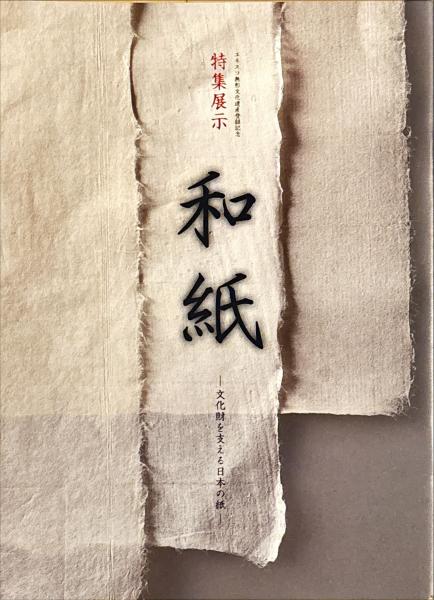 ユネスコ無形文化遺産登録記念
特集展示
和紙
―文化財を支える日本の紙―